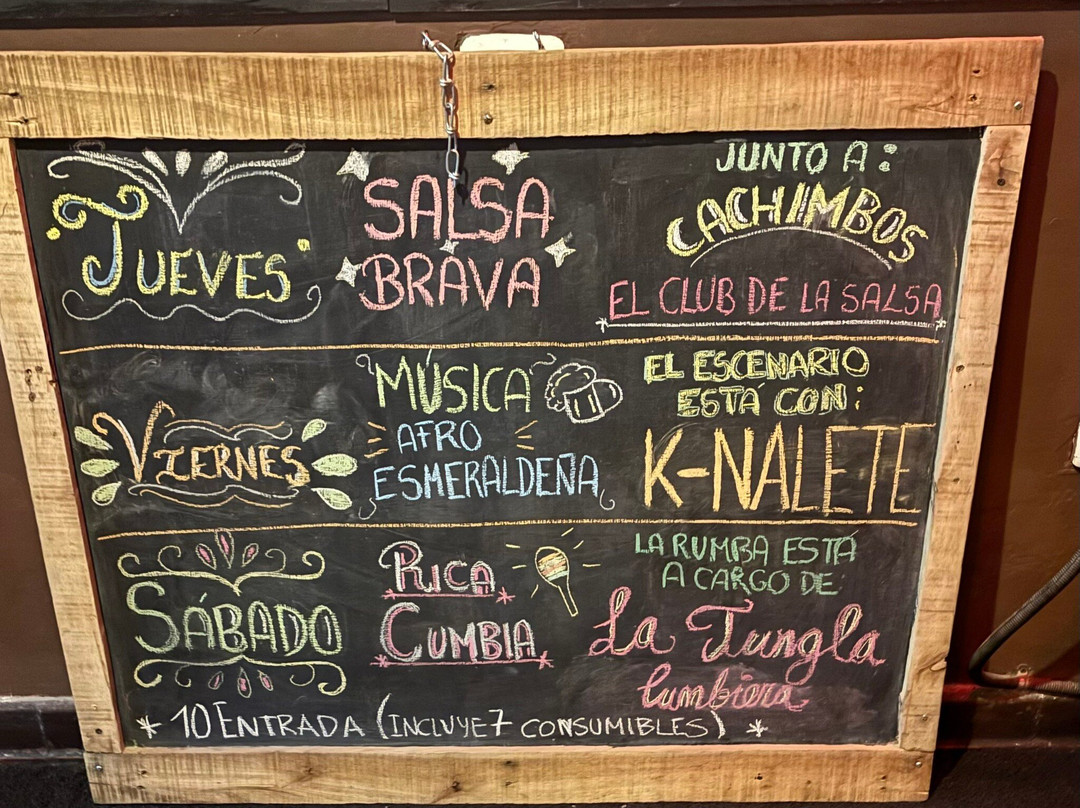 JUEVES
SALSA
BRAVA
JUNTO A:
CACHIMBOS
EL CLUB DE LA SALSA
VIERNES
MÚSICA
AFRO
ESMERALDEÑA
EL ESCENARIO
ESTÁ CON:
K-NALETE
SÁBADO
RICA
CUMBIA
LA RUMBA ESTÁ
A CARGO DE:
La Jungla
Cumbiera
* 10 ENTRADA (INCLUYE 7 CONSUMIBLES) *